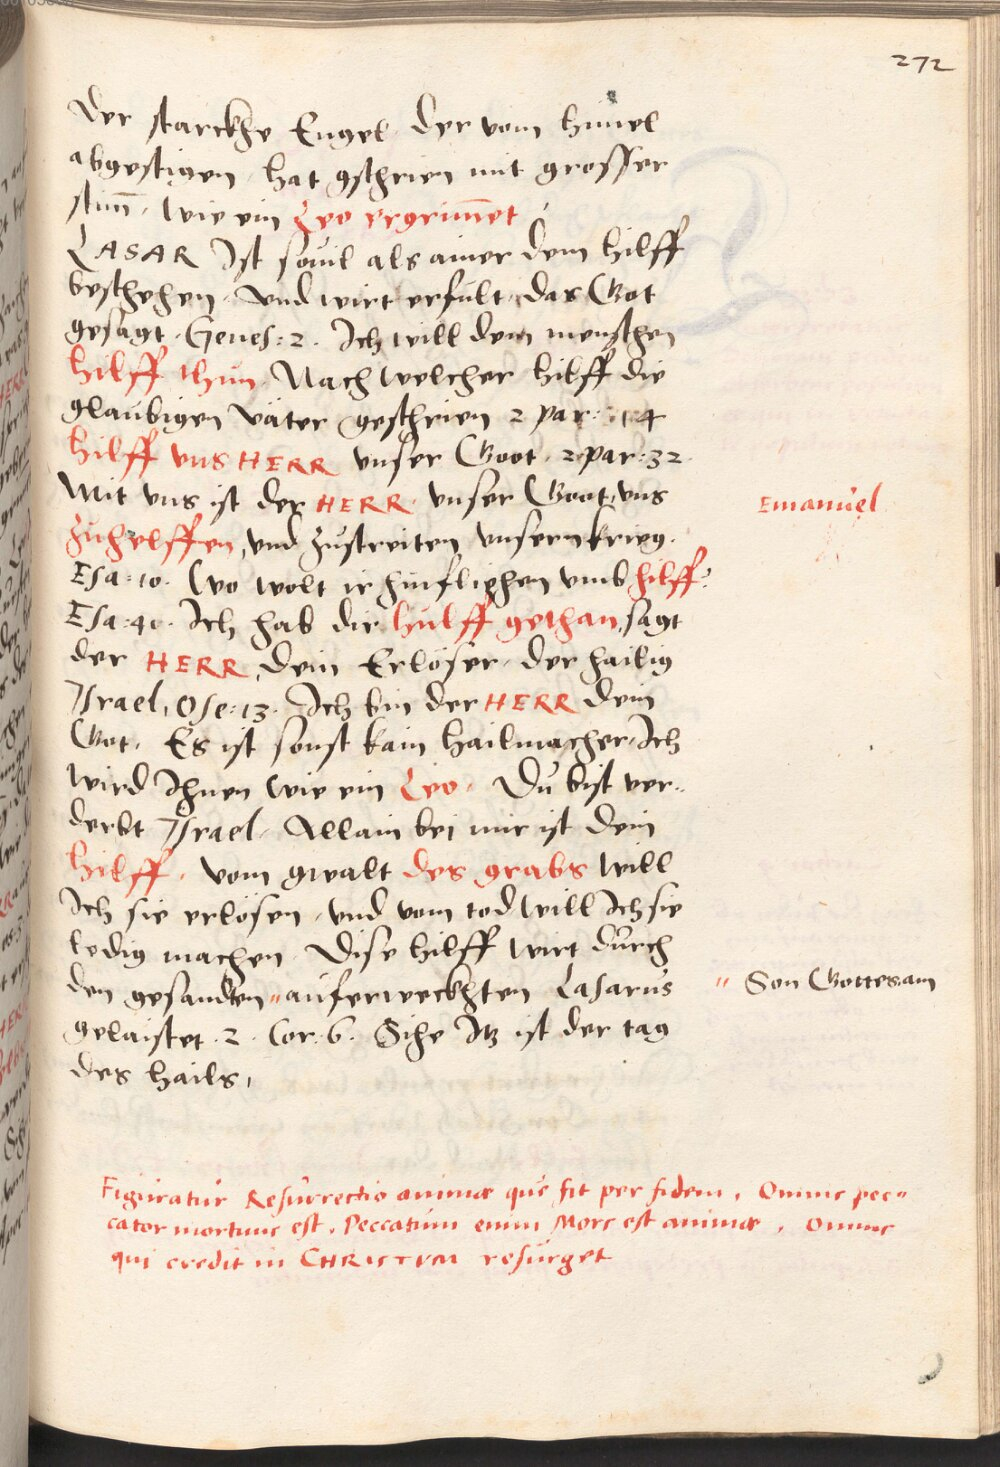 272
Der starckhe Engel der vom himel
abgestigen, hat gschrien mit grosser
stim̄, wie ein Leo ergrim̄et
LASAR Ist souil als ainer dem hilff
beschehen. Vnd wirt erfult, das Got
gesagt. Genes: 2. Ich will dem menschen
hilff thun. Nach welcher hilff die
glaubigen väter geschrien 2 par: 14
hilff vns HERR vnser Goot. 2 par: 32
Mit vns ist der HERR vnser Goot, vns
Emanuel
zuhelffen, vnd zustreiten vnsern krieg.
Esa: 10. Wo wolt ir hinfliehen vmb hilff?
Esa: 41. Ich hab dir hulff gethan, sagt
der HERR, dein Erlöser, der hailig
Israel, Ose: 13. Ich bin der HERR dein
Got. Es ist sonst kain hailmacher, Ich
wird Ihnen wie ein Leo. Du bist ver-
derbt Israel. Allain bei mir ist dein
hilff. vom gwalt des grabs will
Ich sie erlösen, vnd vom tod will Ich sie
ledig machen. Dise hilff wirt durch
den gesandten " auferweckhten Lasarus
" Son Gottes am
gelaistet. 2. Cor. 6. Sihe Itz ist der tag
des hails,
Figuratur Resurrectio animæ que fit per fidem. Omnis pec-
cator mortuus est. Peccatum enim Mors est animæ. Omnis
qui credit in CHRISTVM resurget